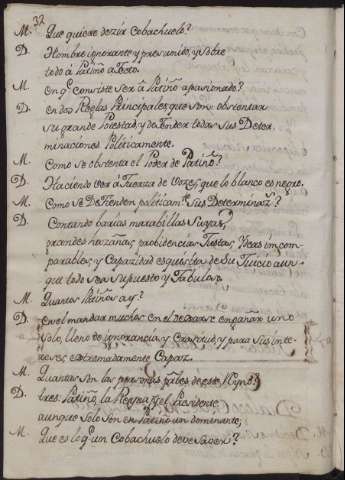 32
M. Que quiere dezir Cobachuelo?
D. Hombre ignorante y presumido, y sobre
todo á Patiño afecto.
M. En q.e consiste ser á Patiño apasionado?
D. en dos Reglas Principales, que son obstentar
su grande Potestad, y defender todas sus Deter
minaciones Politicamente.
M. Como se obstenta el Poder de Patiño?
D. Haciendo ver á fuerza de vozes, que lo blanco es negro.
M. Como se Defienden politicam.te sus Determinaz.s?
D. Contando barias marabillas suyas,
grandes hazañas, probidencias Justas, Ydeas imcom
parables, y Capazidad esquisita de su Juicio aun
que todo sea supuesto y fabulas.
M. Quantos Patiños ay?
D. en el mandar muchos en el dexarse engañar uno
solo, lleno de ignorancia, y Crasitud, y para sus inte
reses extremadamente Capaz.
M. Quantas son las personas p.les de este Reyno?
D. tres: Patiño, la Reyna, y el Presidente
aunque solo son en Patiño un dominante,
M. Que es lo q.e un Cobachuelo deve saver?